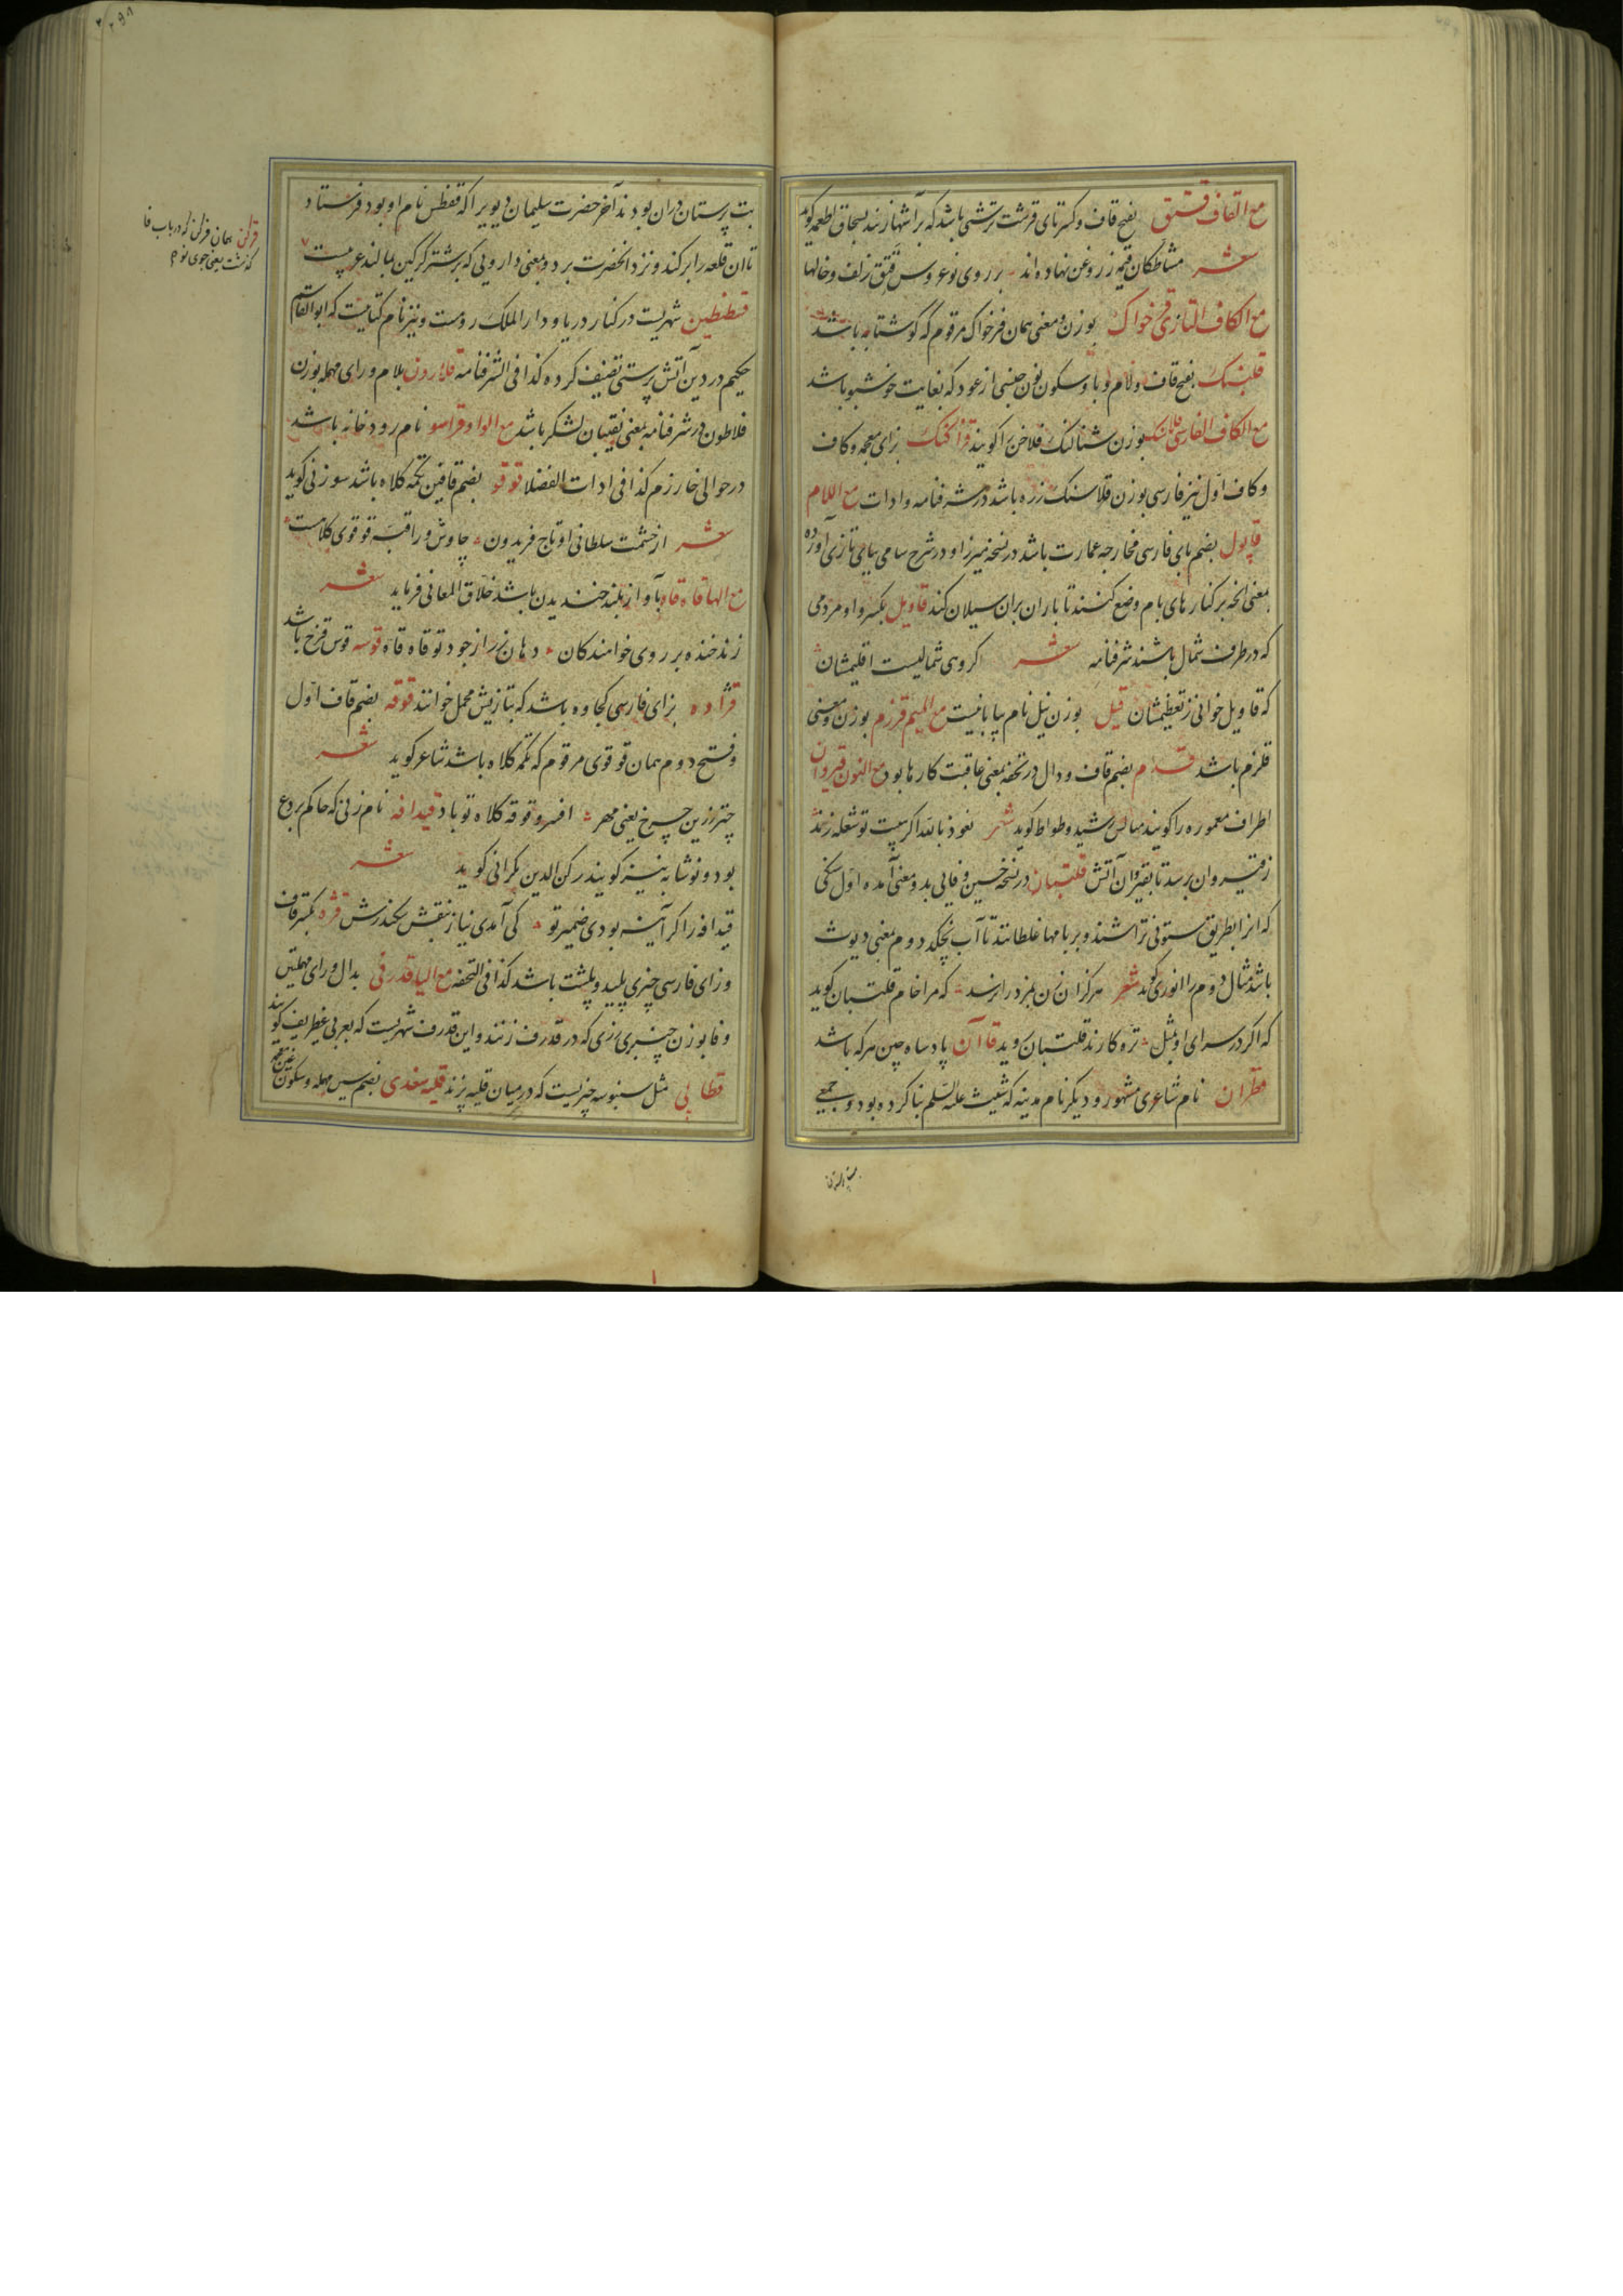 مع القاف قتق بفتح قاف و کسر تای قرشت ترشی باشد که بر آشها زنند بسحاق اطعمه گوید
شعر مشاطکان قیمه ز روغن نهاده‌اند بر روی نوعروس قتق زلف و خالها
مع الکاف التازی قرخواک بوزن و معنی همان فرخواک مرقوم که گوشتابه باشد
قلبنک بفتح قاف و لام و با و سکون نون جنسی از عود که بغایت خوشبو باشد
مع الکاف الفارسی قلاسنک بوزن شتالنک فلاخن را گویند قزاکنک بزای معجمه و کاف
و کاف اول نیز فارسی بوزن قلاسنک زره باشد در شرفنامه و ادات مع اللام
قاپول بضم بای فارسی مخارجه عمارت باشد در نسخه میرزا و در شرح سامی ببای تازی آورده
بمعنی آنچه بر کنارهای بام وضع کنند تا باران بران سیلان کند قاویل بکسر واو مردمی
که در طرف شمال باشند شرفنامه شعر گروهی شمالیست اقلیمشان
که قاویل خوانی ز تعظیمشان قیل بوزن نیل نام بیابانیست مع المیم قرزم بوزن و معنی
قلزم باشد قدم بضم قاف و دال در تحفه بمعنی عاقبت کارها بود مع النون قیروان
اطراف معموره را گویند مثالش رشید وطواط گوید شعر نعوذ بالله اگر هیبت تو شعله زند
ز قیروان برسد تا بقیروان آتش قلتبان در نسخه حسین وفایی بدو معنی آمده اول سنگی
که انرا بطریق ستونی تراشند و بر بامها غلطانند تا آب نچکد دوم بمعنی دیوث
باشد مثال دوم را انوری گوید شعر هرگز آن زن بمزد را نرسد که مرا خام قلتبان گوید
که اگر در سرای او بمثل تره کارند قلتبان روید قاآن پادشاه چین هر که باشد
قطران نام شاعری مشهور و دیگر نام مدینه که شیث علیه السلم بنا کرده بود و جمعی
بت پرستان
بت پرستان دران بودند آخر حضرت سلیمان دیویرا که قفطس نام او بود فرستاد
تا آن قلعه را بر کند و نزد آنحضرت برد و بمعنی دارویی که بر شتر کرکین بمالند عربیست
قسطنطین شهریست در کنار دریا و دار الملک روست و نیز نام کتابیست که ابوالقاسم
حکیم در دین آتش پرستی تصنیف کرده کذا فی الشرفنامه قلارون بلام و رای مهمله بوزن
فلاطون در شرفنامه بمعنی نقیبان لشکر باشد مع الواو قراسو نام رودخانه باشد
در حوالی خارزم کذا فی ادات الفضلا قوقو بضم قافین تکمه کلاه باشد سوزنی گوید
شعر از حشمت سلطانی او تاج فریدون چاوش و را قبه قوقوی کلاهست
مع الها قاه قاه آواز بلند خندیدن باشد خلاق المعانی فرماید شعر
زند خنده بر روی خواهندکان دهان زر از جود تو قاه قاه قوسه قوس قزح باشد
قژاده بزای فارسی کجاوه باشد که بتازیش محمل خوانند قوقه بضم قاف اول
و فتح دوم همان قوقوی مرقوم که تکمه کلاه باشد شاعر گوید شعر
چتر زرین چرخ یعنی مهر افسر و قوقه کلاه تو باد قیدافه نام زنی که حاکم بردع
بود و نوشابه نیز گویند رکن الدین بکرانی گوید شعر
قیدافه را گر آینه بودی ضمیر تو کی آمدی نیاز بنقش سکندرش قژه بکسر قاف
و زای فارسی چیزی پلید و پلشت باشد کذا فی التحفه مع الیا قدرفی بدال و رای مهملتین
و فا بوزن چنبری زری که در قدرف زنند و این قدرف شهریست که بعربی غطریف گویند
قطابی مثل سنبوسه چیزیست که در میان قلیه پزند قلیه سغدی بضم سین مهمله و سکون غین معجمه
قرکن همان فرکن که در باب فا
گذشت یعنی جوی نو